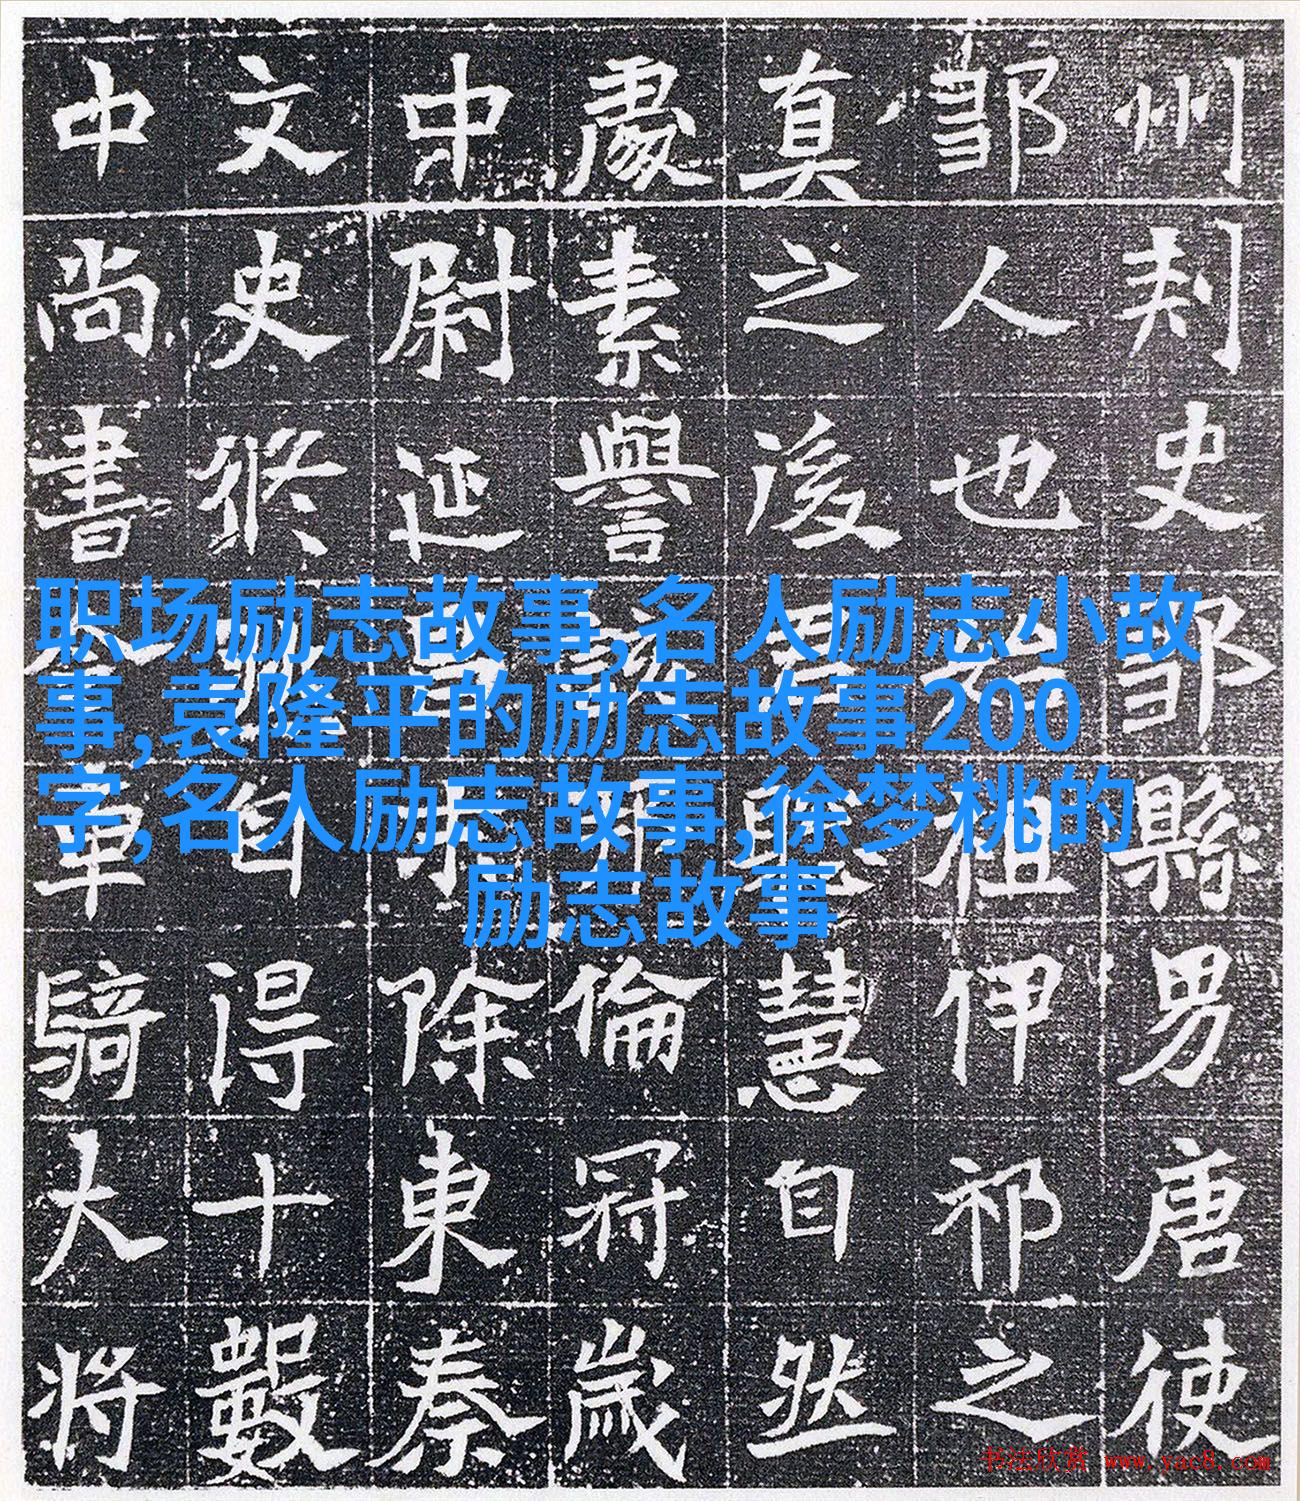 职场励志故事,名人励志小故
事,袁隆平的励志故事200
字,名人励志故事,徐梦桃的
励志故事
州刾史鄒縣男唐使
鄒人也祖伊祁之
真之後慧自然
處素譽倫冠歲
中尉延昌除東秦
文史自得十數
中尚書令車騎大將
书法欣赏 www.yac8.com